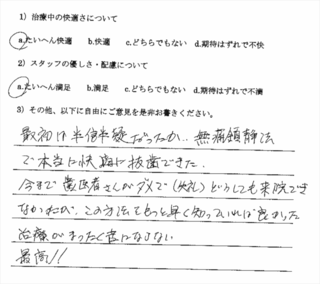 1）治療中の快適さについて
a.たいへん快適　b.快適　c.どちらでもない　d.期待はずれで不快
2）スタッフの優しさ・配慮について
a.たいへん満足　b.満足　c.どちらでもない　d.期待はずれで不満
3）その他、以下に自由にご意見を是非お書きください。
最初は半信半疑だったが、無痛鎮静法
で本当に快適に抜歯できた。
今まで歯医者さんがダメで(失礼)どうしても来院でき
なかったが、この方法をもっと早く知っていれば良かった
治療がまったく苦にならない
最高!!